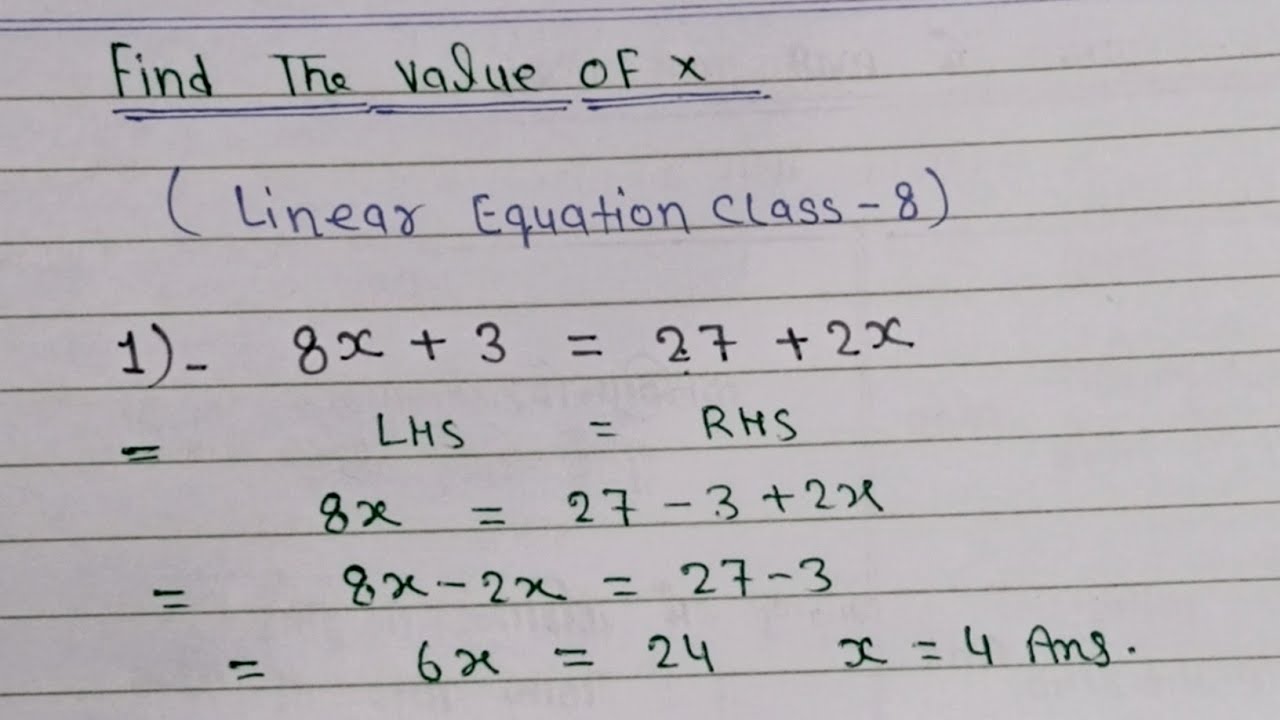 Find The value OF x
(Linear Equation Class-8)
1)- 8x + 3 = 27 + 2x
= LHS = RHS
8x = 27 - 3 + 2x
= 8x - 2x = 27 - 3
= 6x = 24 x = 4 Ans.